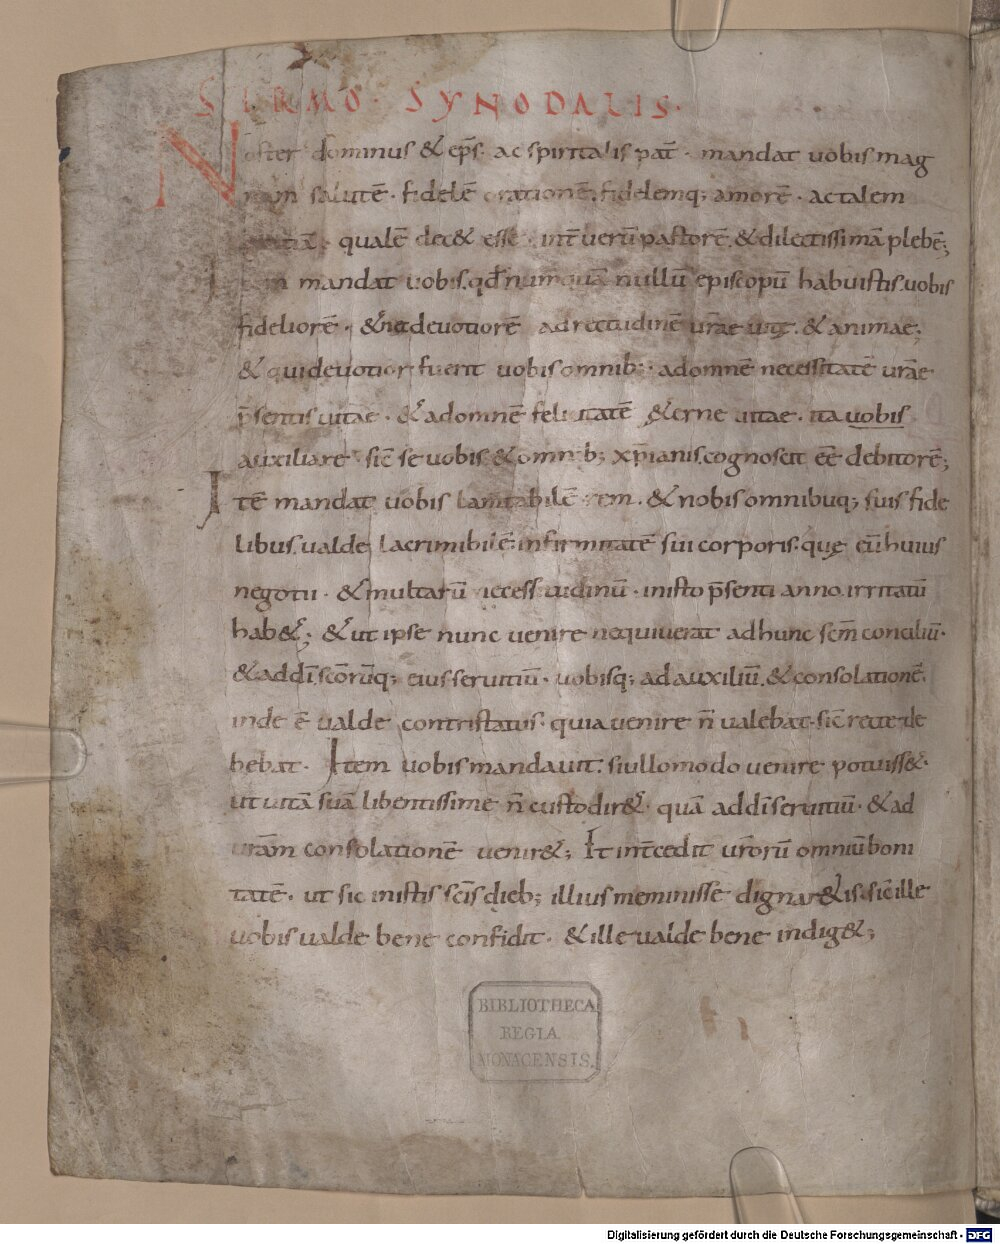 SERMO · SYNODALIS·
Noster dominus & ep̄s· ac spiritalis pat̄ · mandat uobis mag
nam salutē · fidelē orationē, fidelemq; amorē · ac talem
qualē dec& esse · int̄ uerū pastorē & dilectissimā plebē;
Item mandat uobis. qđ numquā nullū episcopū habuistis. uobis
fideliorē · & nec deuotiorē ad rectitudinē ur̄ae uitę · & animae;
& qui deuotior fuerit uobis omnib; · ad omnē necessitatē ur̄ae
p̄sentis uitae · & ad omnē felicitatē &erne uitae · ita uobis
auxiliare sic̄ se uobis & omnib; xp̄ianis. cognoscit eē debitorē;
Itē mandat uobis lamtabilē rem · & nobis omnibuq; suis fide
libus. ualde lacrimibilē. infirmitatē sui corporis· quę eū huius
negotii · & multarū necessitudinū · in isto p̄senti anno. irritatū
hab&; & ut ipse nunc uenire nequiuerat ad hunc sc̄m conciliū·
& ad dī sc̄orūq; eius seruitiū · uobisq; ad auxiliū. & consolationē.
inde ē ualde contristatus· quia uenire n̄ ualebat· sic̄ recte de
bebat · Item uobis mandauit. si ullo modo uenire potuiss&·
ut uitā suā libentissime n̄ custodir&· quā ad dī seruitiū · & ad
ur̄am consolationē uenir&; It int̄cedit ur̄orū omniū boni
tatē · ut sic in istis sc̄is dieb; illius meminisse dignar&is· sic̄ ille
uobis ualde bene confidit · & ille ualde bene indig&;
BIBLIOTHECA
REGIA
MONACENSIS.
Digitalisierung gefördert durch die Deutsche Forschungsgemeinschaft - DFG